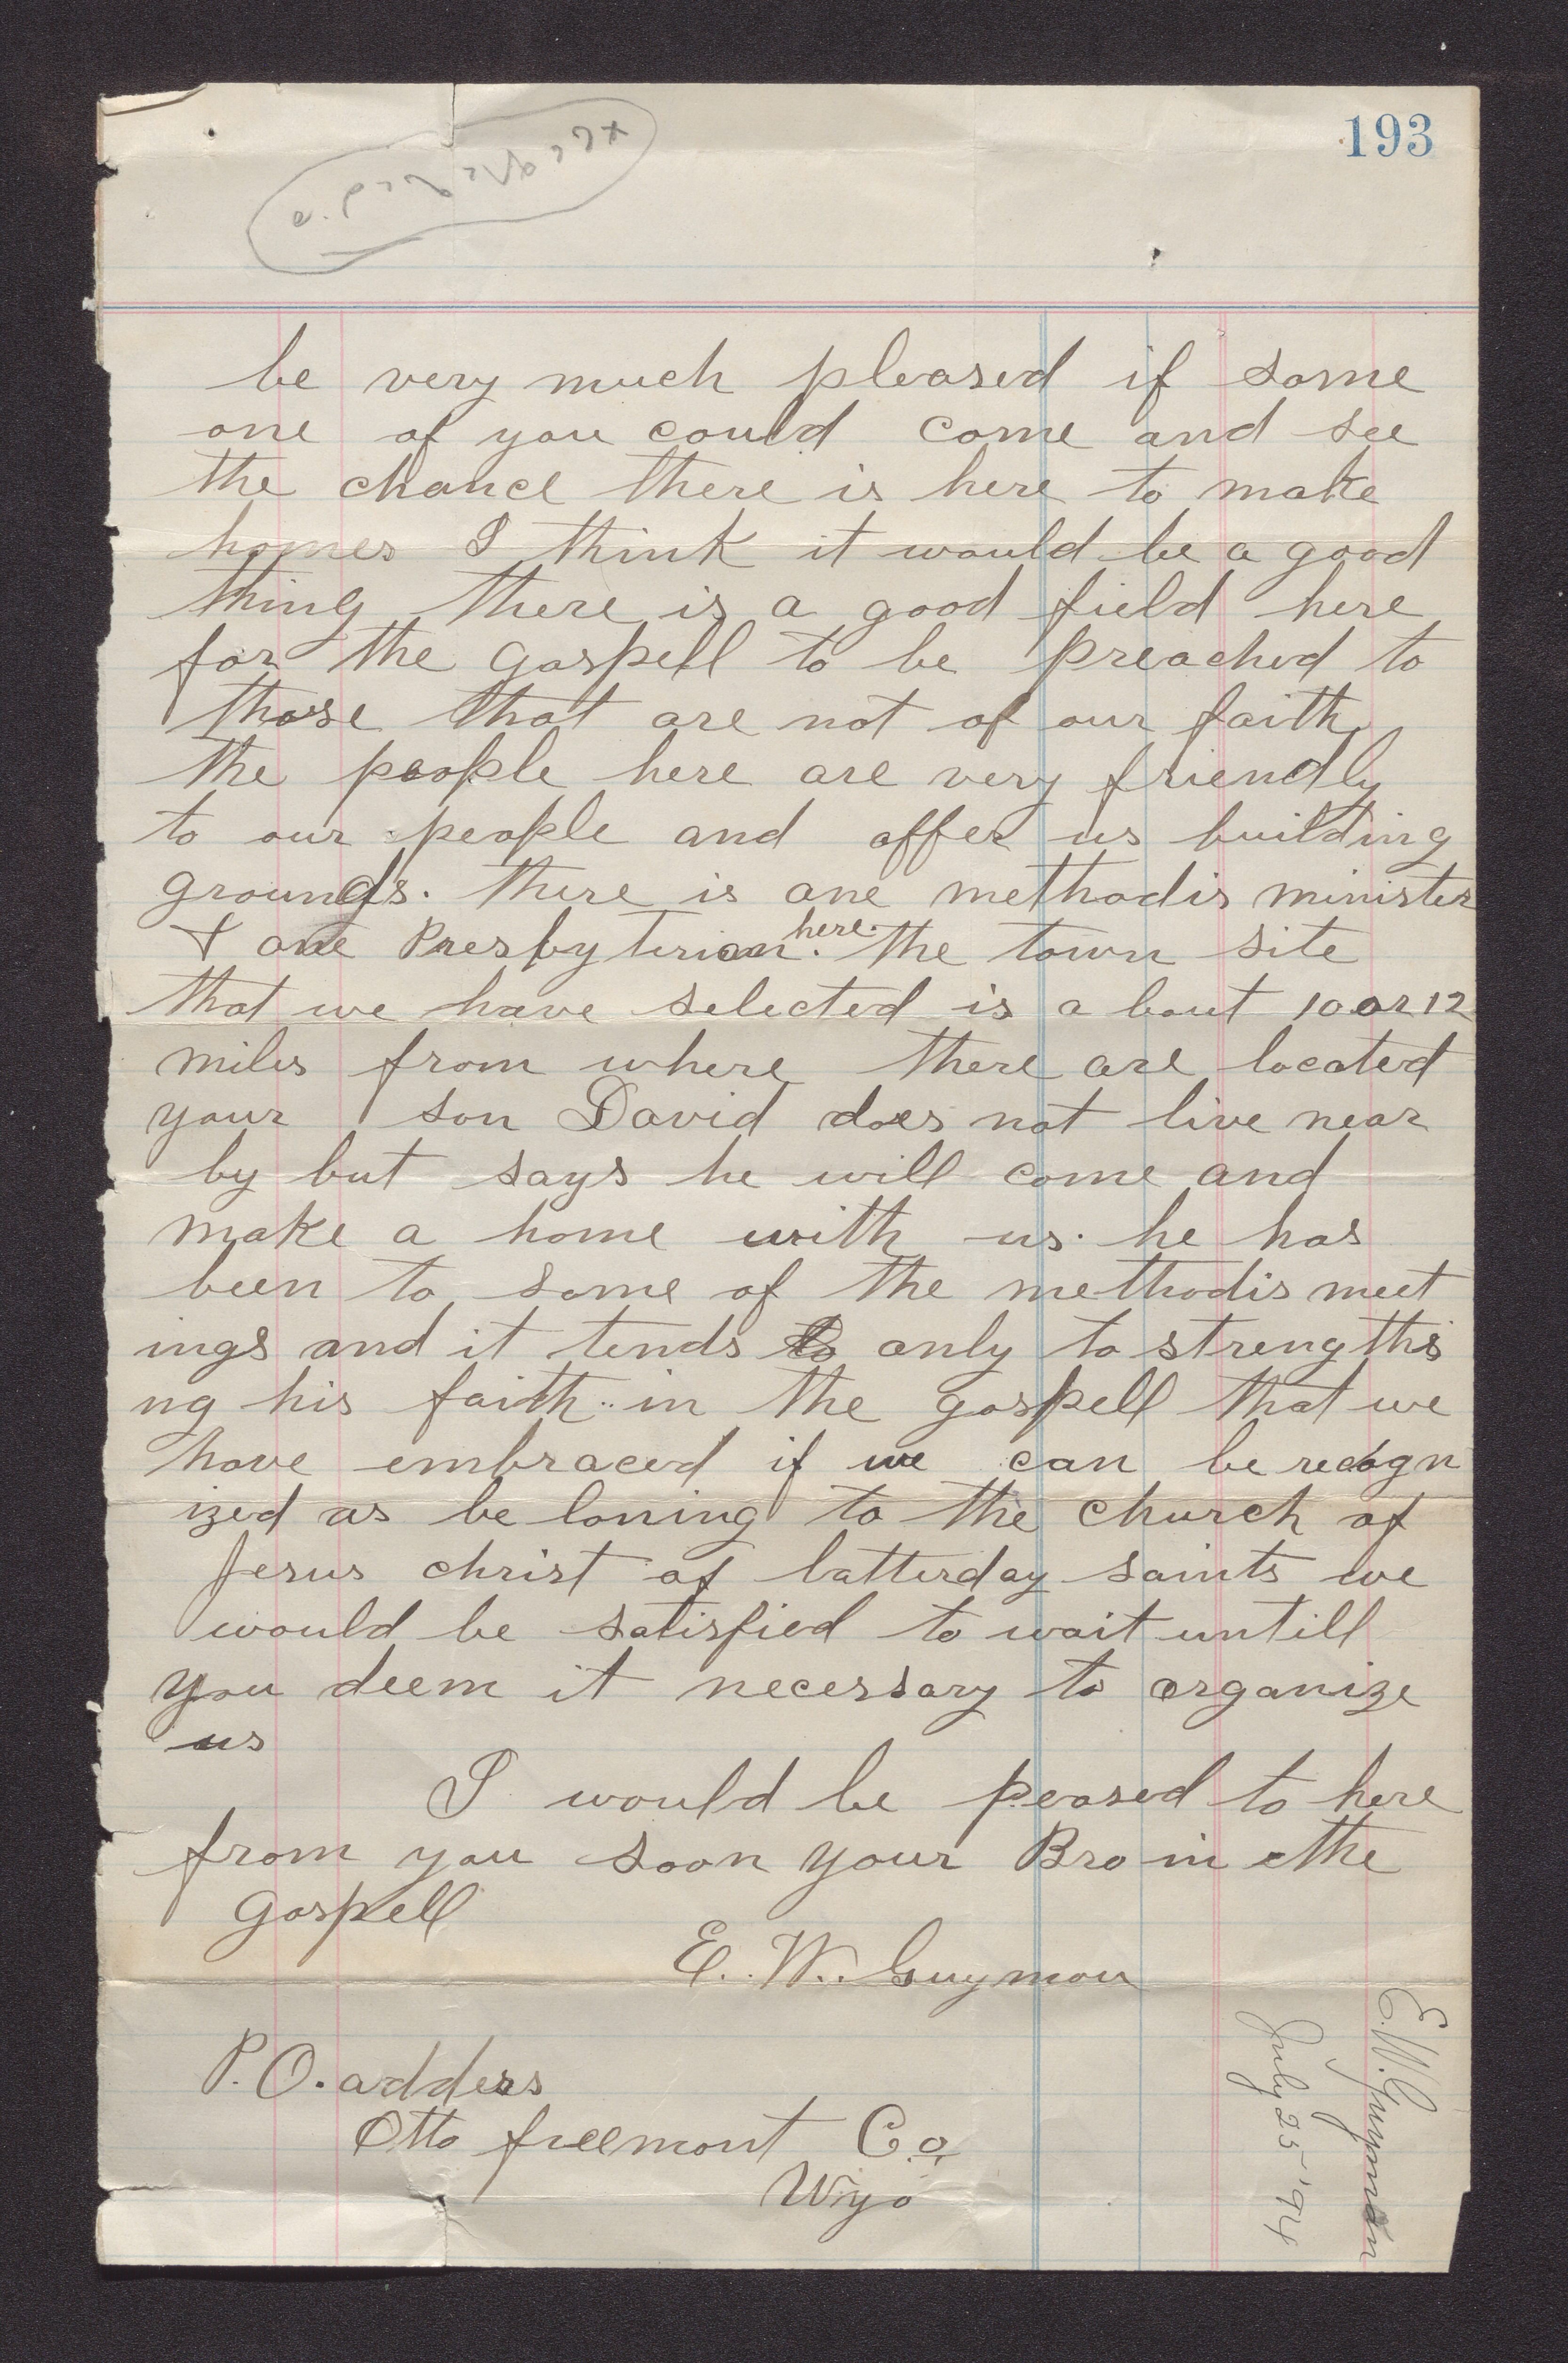 193
be very much pleased if some
one of you could come and see
the chance there is here to make
homes I think it would be a good
thing there is a good field here
for the gospell to be preached to
those that are not of our faith
the people here are very friendly
to our people and offer us building
grounds. there is one methodis minister
& one Presbyterian here. the town site
that we have selected is a bout 10 or 12
miles from where there are located
your son David does not live near
by but says he will come and
make a home with us. he has
been to some of the methodis meet
ings and it tends to only to strengthi
ng his faith in the gospell that we
have embraced if we can be recogn
ized as be loning to the church of
Jesus christ of latterday saints we
would be satisfied to wait untill
you deem it necessary to organize
us
I would be peased to here
from you soon your Bro in the
gospell
E. W. Guymon
P. O. adders
Otto freemont Co.
Wyo
E. W. Guymon
July 25 '94